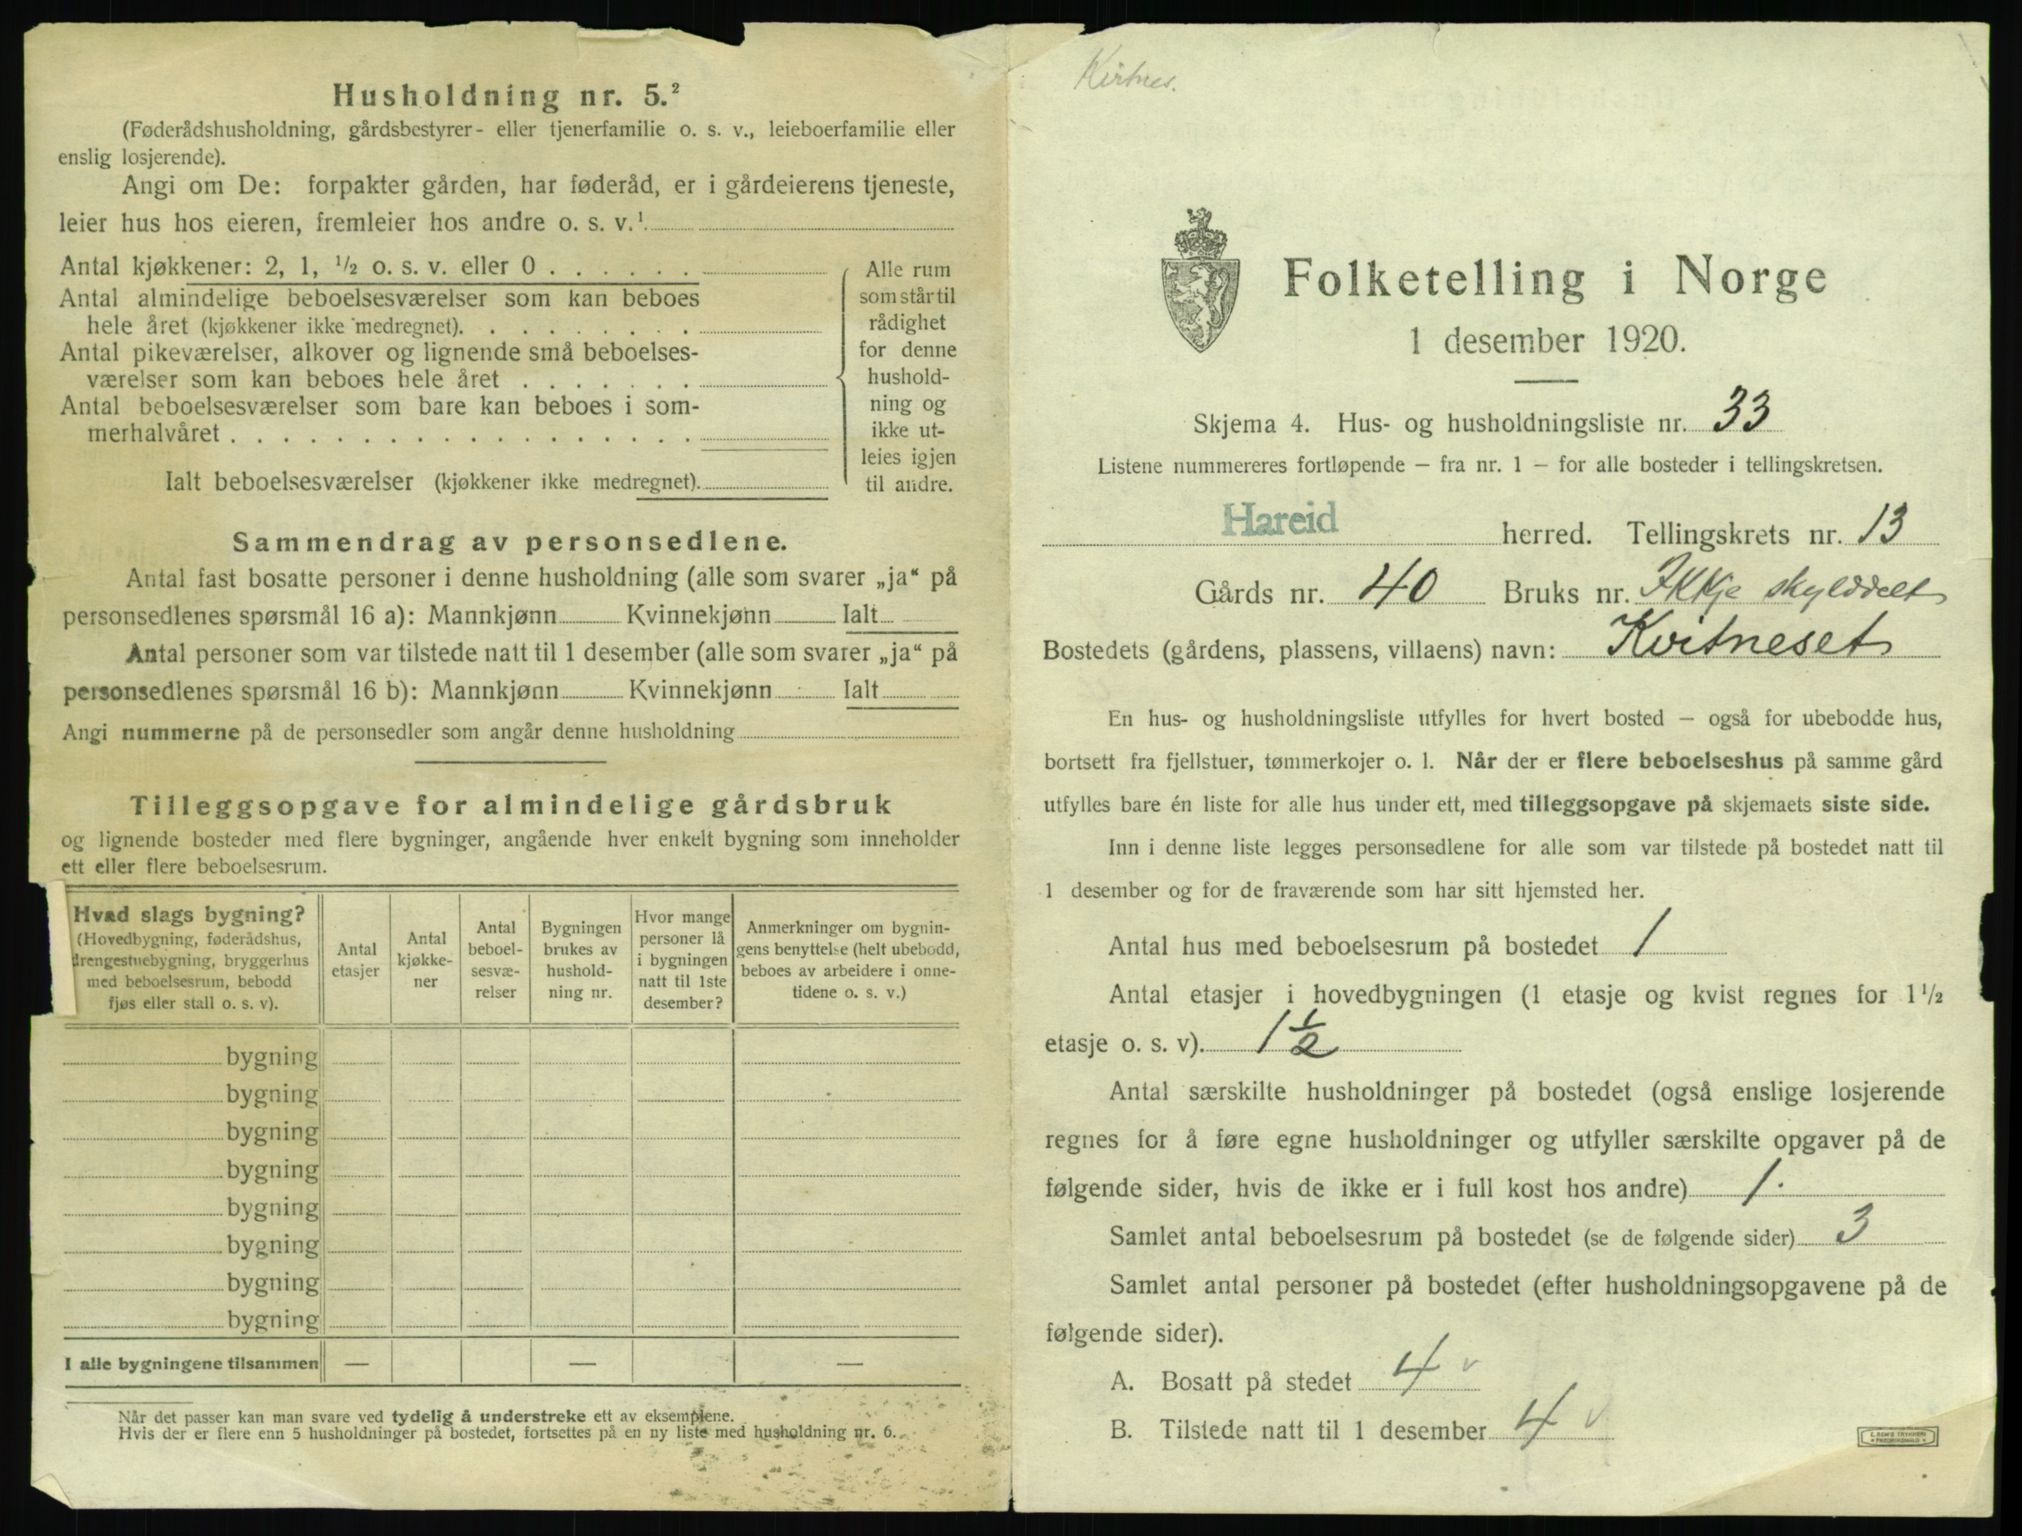 Husholdning nr. 5.²
(Føderådshusholdning, gårdsbestyrer- eller tjenerfamilie o. s. v., leieboerfamilie eller
enslig losjerende).
Angi om De: forpakter gården, har føderåd, er i gårdeierens tjeneste,
leier hus hos eieren, fremleier hos andre o. s. v.¹
Antal kjøkkener: 2, 1, ½ o. s. v. eller 0 . . . . . .
Antal almindelige beboelsesværelser som kan beboes
hele året (kjøkkener ikke medregnet). . . . . . . . .
Antal pikeværelser, alkover og lignende små beboelses-
værelser som kan beboes hele året . . . . . . .
Antal beboelsesværelser som bare kan beboes i som-
merhalvåret . . . . . . . . . . . . . . . . . .
Ialt beboelsesværelser (kjøkkener ikke medregnet).
Alle rum
som står til
rådighet
for denne
hushold-
ning og
ikke ut-
leies igjen
til andre.
Sammendrag av personsedlene.
Antal fast bosatte personer i denne husholdning (alle som svarer „ja“ på
personsedlenes spørsmål 16 a): Mannkjønn Kvinnekjønn Ialt
Antal personer som var tilstede natt til 1 desember (alle som svarer „ja“ på
personsedlenes spørsmål 16 b): Mannkjønn Kvinnekjønn Ialt
Angi nummerne på de personsedler som angår denne husholdning
Tilleggsopgave for almindelige gårdsbruk
og lignende bosteder med flere bygninger, angående hver enkelt bygning som inneholder
ett eller flere beboelsesrum.
Hvad slags bygning?
(Hovedbygning, føderådshus,
drengestuebygning, bryggerhus
med beboelsesrum, bebodd
fjøs eller stall o. s. v).
Antal
etasjer
Antal
kjøkke-
ner
Antal
beboel-
sesvæ-
relser
Bygningen
brukes av
hushold-
ning nr.
Hvor mange
personer lå
i bygningen
natt til 1ste
desember?
Anmerkninger om bygnin-
gens benyttelse (helt ubebodd,
beboes av arbeidere i onne-
tidene o. s. v.)
bygning
bygning
bygning
bygning
bygning
bygning
bygning
bygning
I alle bygningene tilsammen — — —
Når det passer kan man svare ved tydelig å understreke ett av eksemplene.
Hvis der er flere enn 5 husholdninger på bostedet, fortsettes på en ny liste med husholdning nr. 6.
Folketelling i Norge
1 desember 1920.
Skjema 4. Hus- og husholdningsliste nr. 33
Listene nummereres fortløpende – fra nr. 1 – for alle bosteder i tellingskretsen.
Hareid herred. Tellingskrets nr. 13
Gårds nr. 40 Bruks nr. Ikkje skylddelt
Bostedets (gårdens, plassens, villaens) navn: Kvitneset
En hus- og husholdningsliste utfylles for hvert bosted – også for ubebodde hus,
bortsett fra fjellstuer, tømmerkojer o. l. Når der er flere beboelseshus på samme gård
utfylles bare én liste for alle hus under ett, med tilleggsopgave på skjemaets siste side.
Inn i denne liste legges personsedlene for alle som var tilstede på bostedet natt til
1 desember og for de fraværende som har sitt hjemsted her.
Antal hus med beboelsesrum på bostedet 1
Antal etasjer i hovedbygningen (1 etasje og kvist regnes for 1½
etasje o. s. v). 1½
Antal særskilte husholdninger på bostedet (også enslige losjerende
regnes for å føre egne husholdninger og utfyller særskilte opgaver på de
følgende sider, hvis de ikke er i full kost hos andre) 1.
Samlet antal beboelsesrum på bostedet (se de følgende sider) 3
Samlet antal personer på bostedet (efter husholdningsopgavene på de
følgende sider).
A. Bosatt på stedet 4 v
B. Tilstede natt til 1 desember 4 v